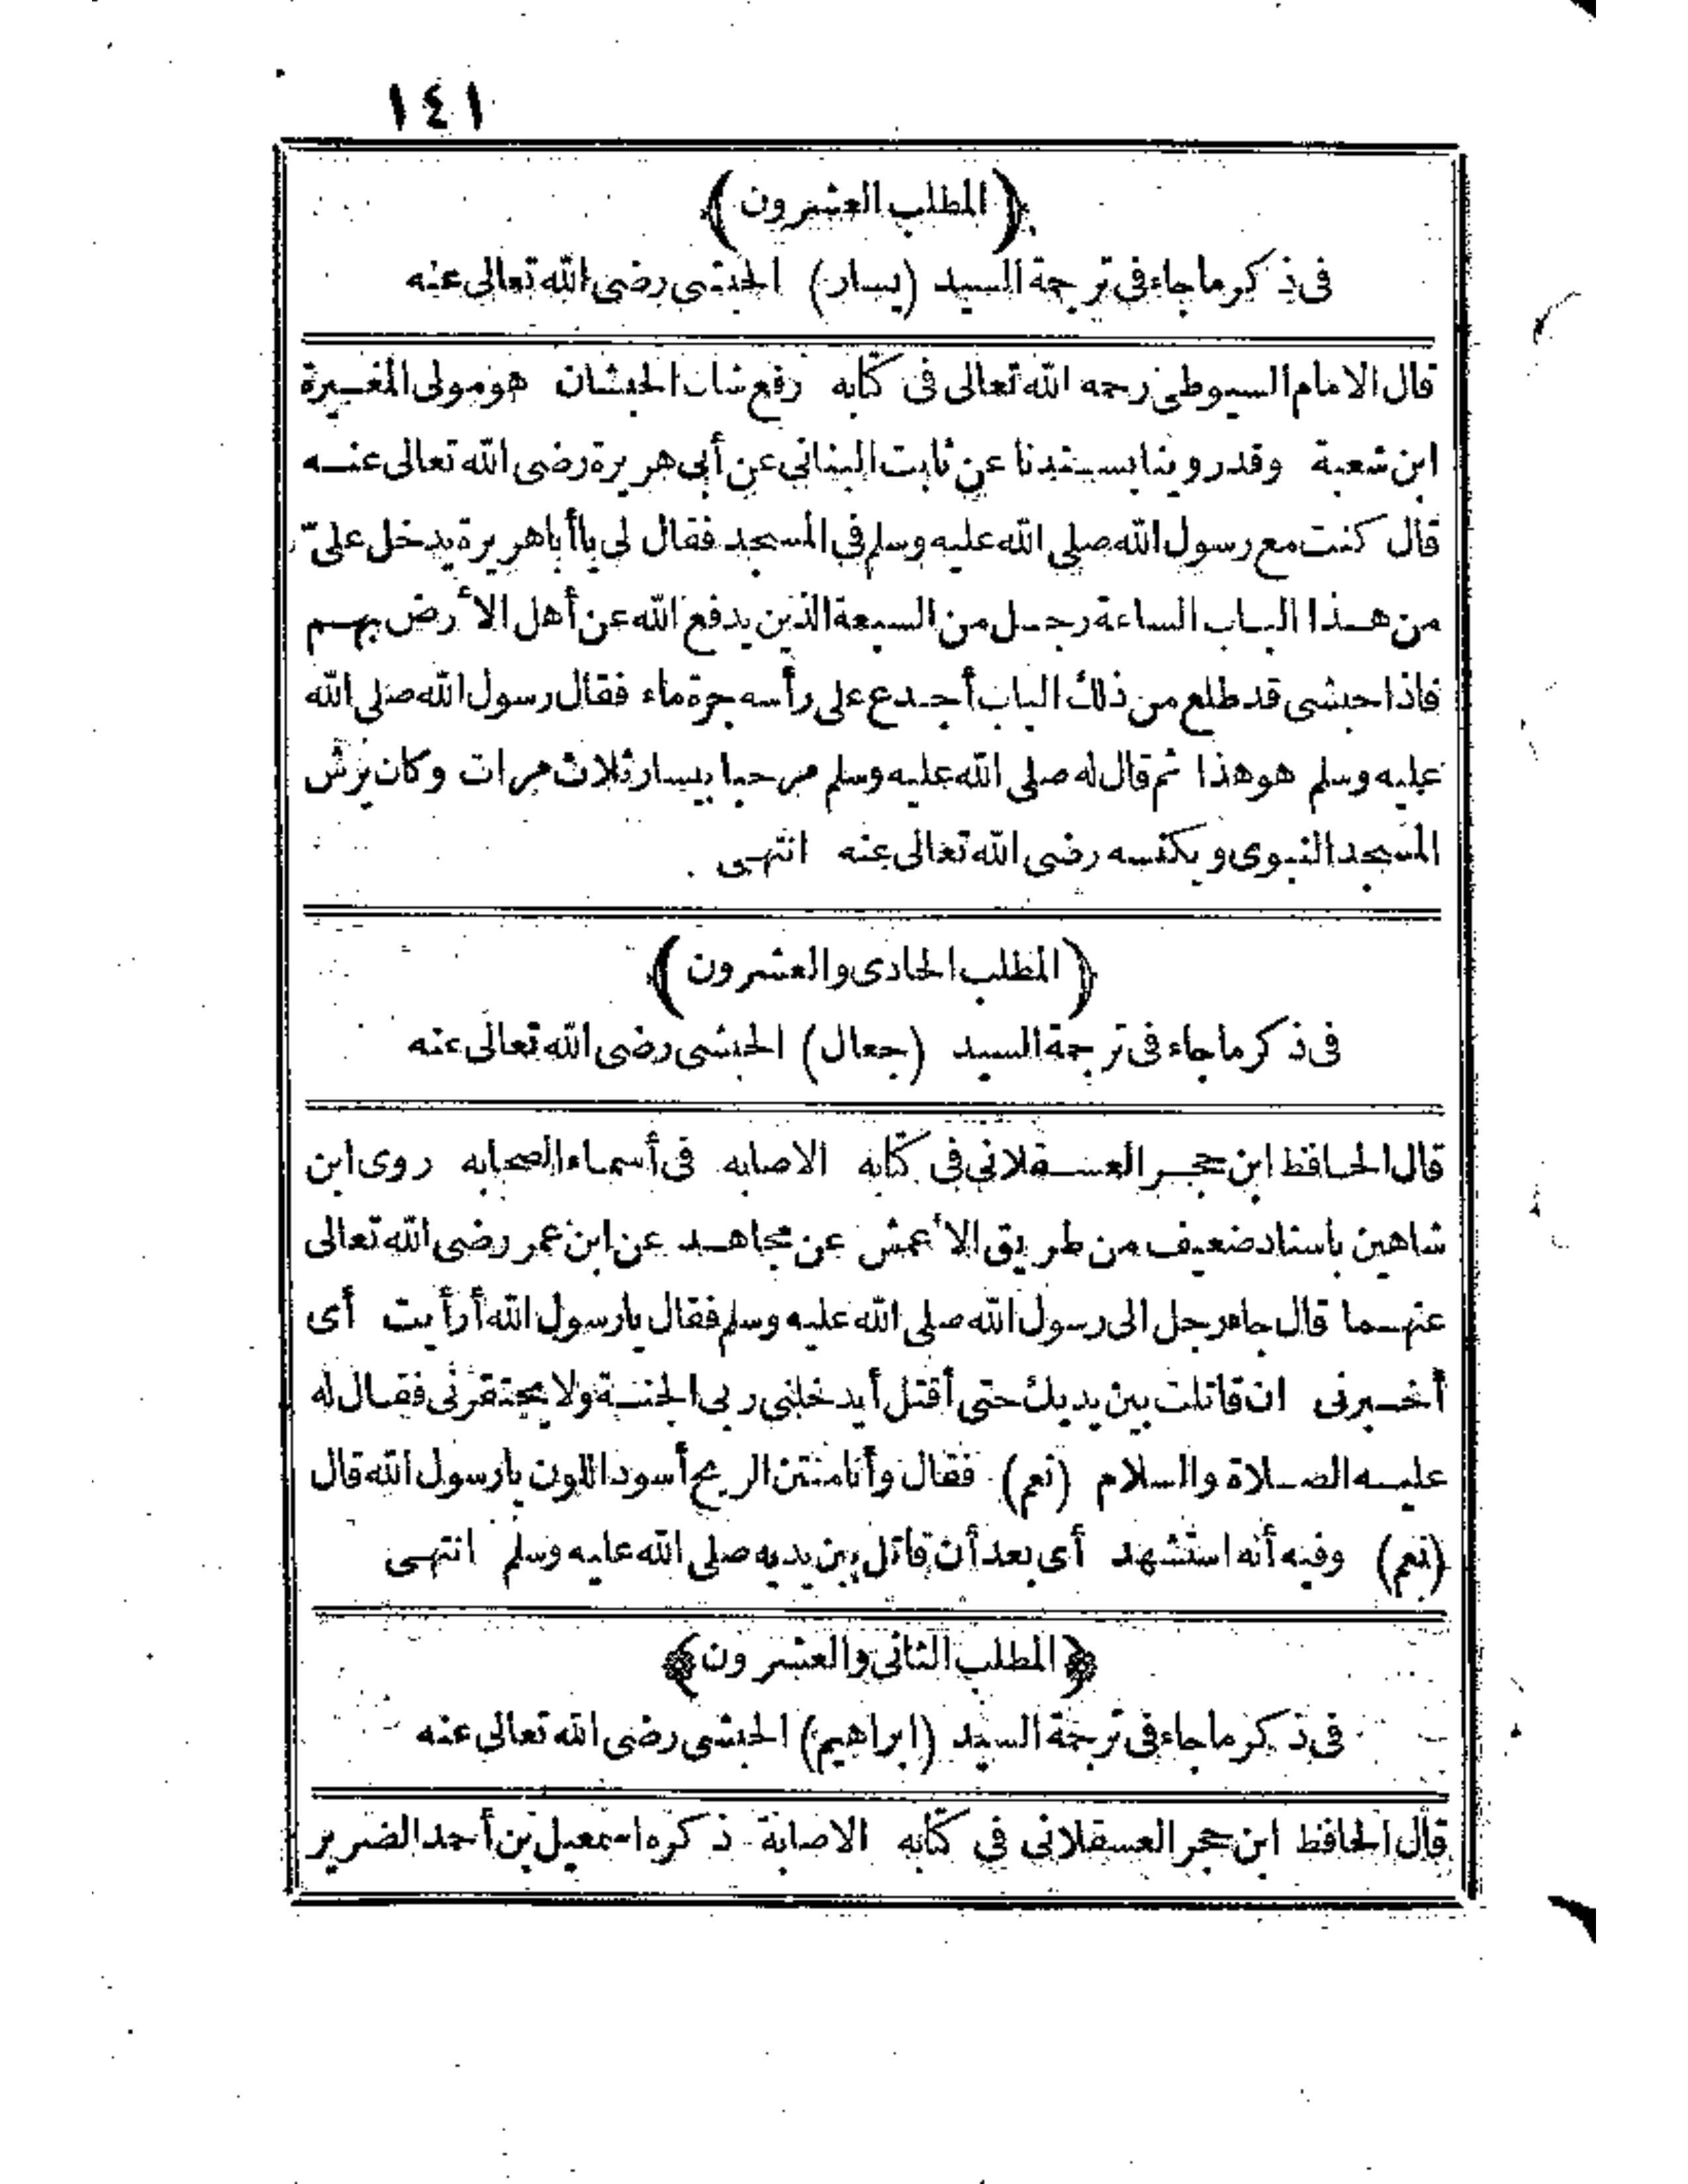 ١٤١
﴿المطلب العشرون﴾
فى ذكر ماجاء فى ترجمة السيد (يسار) الحبشى رضى الله تعالى عنه
قال الامام السيوطى رحمه الله تعالى فى كتابه رفع شان الحبشان هو مولى المغيرة
ابن شعبة وقد روينا بسندنا عن ثابت البنانى عن أبى هريرة رضى الله تعالى عنه
قال كنت مع رسول الله صلى الله عليه وسلم فى المسجد فقال لى ياأباهريرة يدخل علىّ
من هذا الباب الساعة رجل من السبعة الذين يدفع الله عن أهل الأرض بهم
فاذا حبشى قد طلع من ذلك الباب أجدع على رأسه جرة ماء فقال رسول الله صلى الله
عليه وسلم هو هذا ثم قال له صلى الله عليه وسلم مرحبا بيسار ثلاث مرات وكان يرش
المسجد النبوى ويكنسه رضى الله تعالى عنه انتهى
﴿المطلب الحادى والعشرون﴾
فى ذكر ماجاء فى ترجمة السيد (جعال) الحبشى رضى الله تعالى عنه
قال الحافظ ابن حجر العسقلانى فى كتابه الاصابه فى أسماء الصحابه روى ابن
شاهين باسناد ضعيف من طريق الأعمش عن مجاهد عن ابن عمر رضى الله تعالى
عنهما قال جاء رجل الى رسول الله صلى الله عليه وسلم فقال يارسول الله أرأيت أى
أخبرنى ان قاتلت بين يديك حتى أقتل أيدخلنى ربى الجنة ولا يحتقرنى فقال له
عليه الصلاة والسلام (نعم) فقال وأنا منتن الريح أسود اللون يارسول الله قال
(نعم) وفيه أنه استشهد أى بعد أن قاتل بين يديه صلى الله عليه وسلم انتهى
﴿المطلب الثانى والعشرون﴾
فى ذكر ماجاء فى ترجمة السيد (ابراهيم) الحبشى رضى الله تعالى عنه
قال الحافظ ابن حجر العسقلانى فى كتابه الاصابة ذكره اسمعيل بن أحمد الضرير